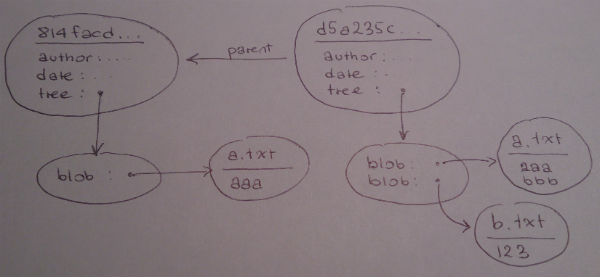 814facd...
author:....
date:...
tree:
parent
d5a235c...
author:....
date:..
tree:
blob:
a.txt
aaa
blob:
blob:
a.txt
aaa
bbb
b.txt
123